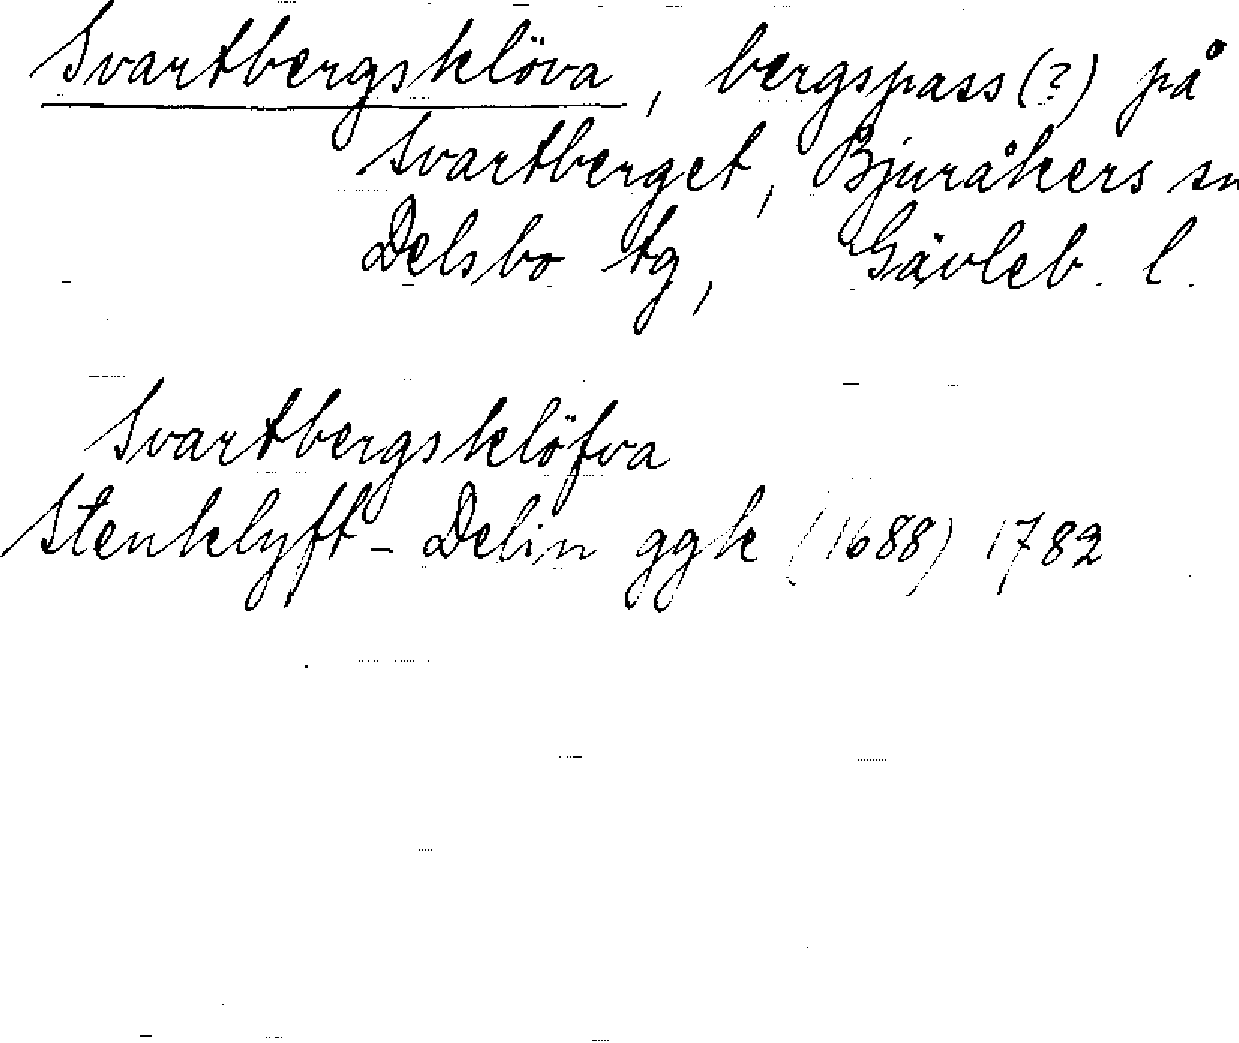 Svartbergsklöva, bergspass(?) på
Svartberget, Bjuråkers sn
Delsbo tg, Gävleb. l.
Svartbergsklöfva
Stenklyft - Delin ggk (1688) 1782